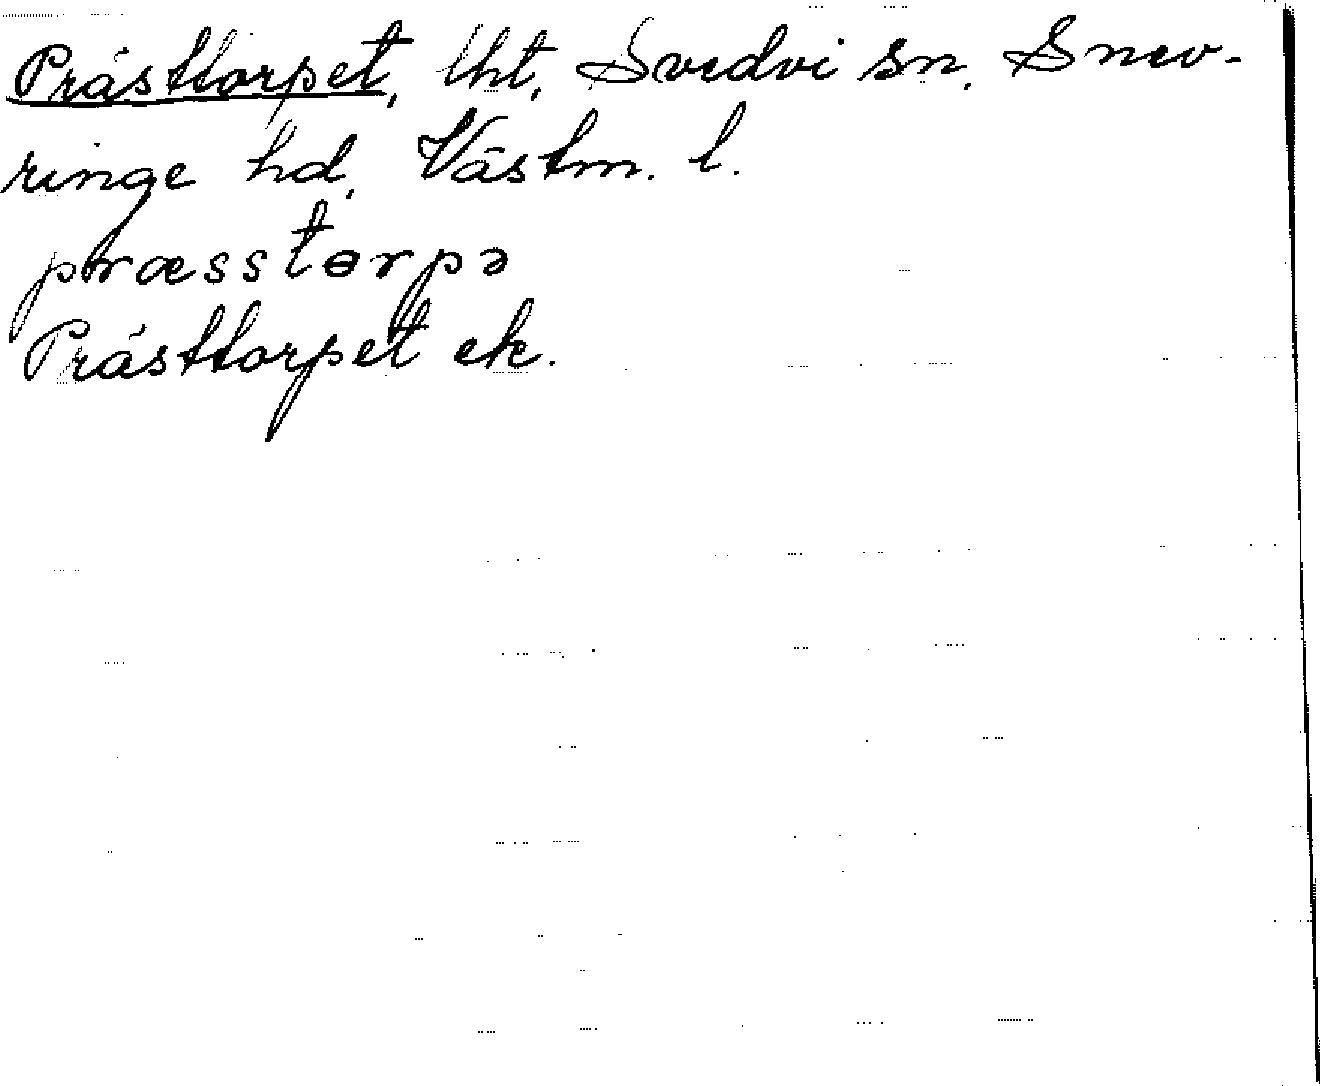 Prästtorpet, lht, Svedvi sn, Snev-
ringe hd, Västm. l.
præsstɵrpə
Prästtorpet ek.